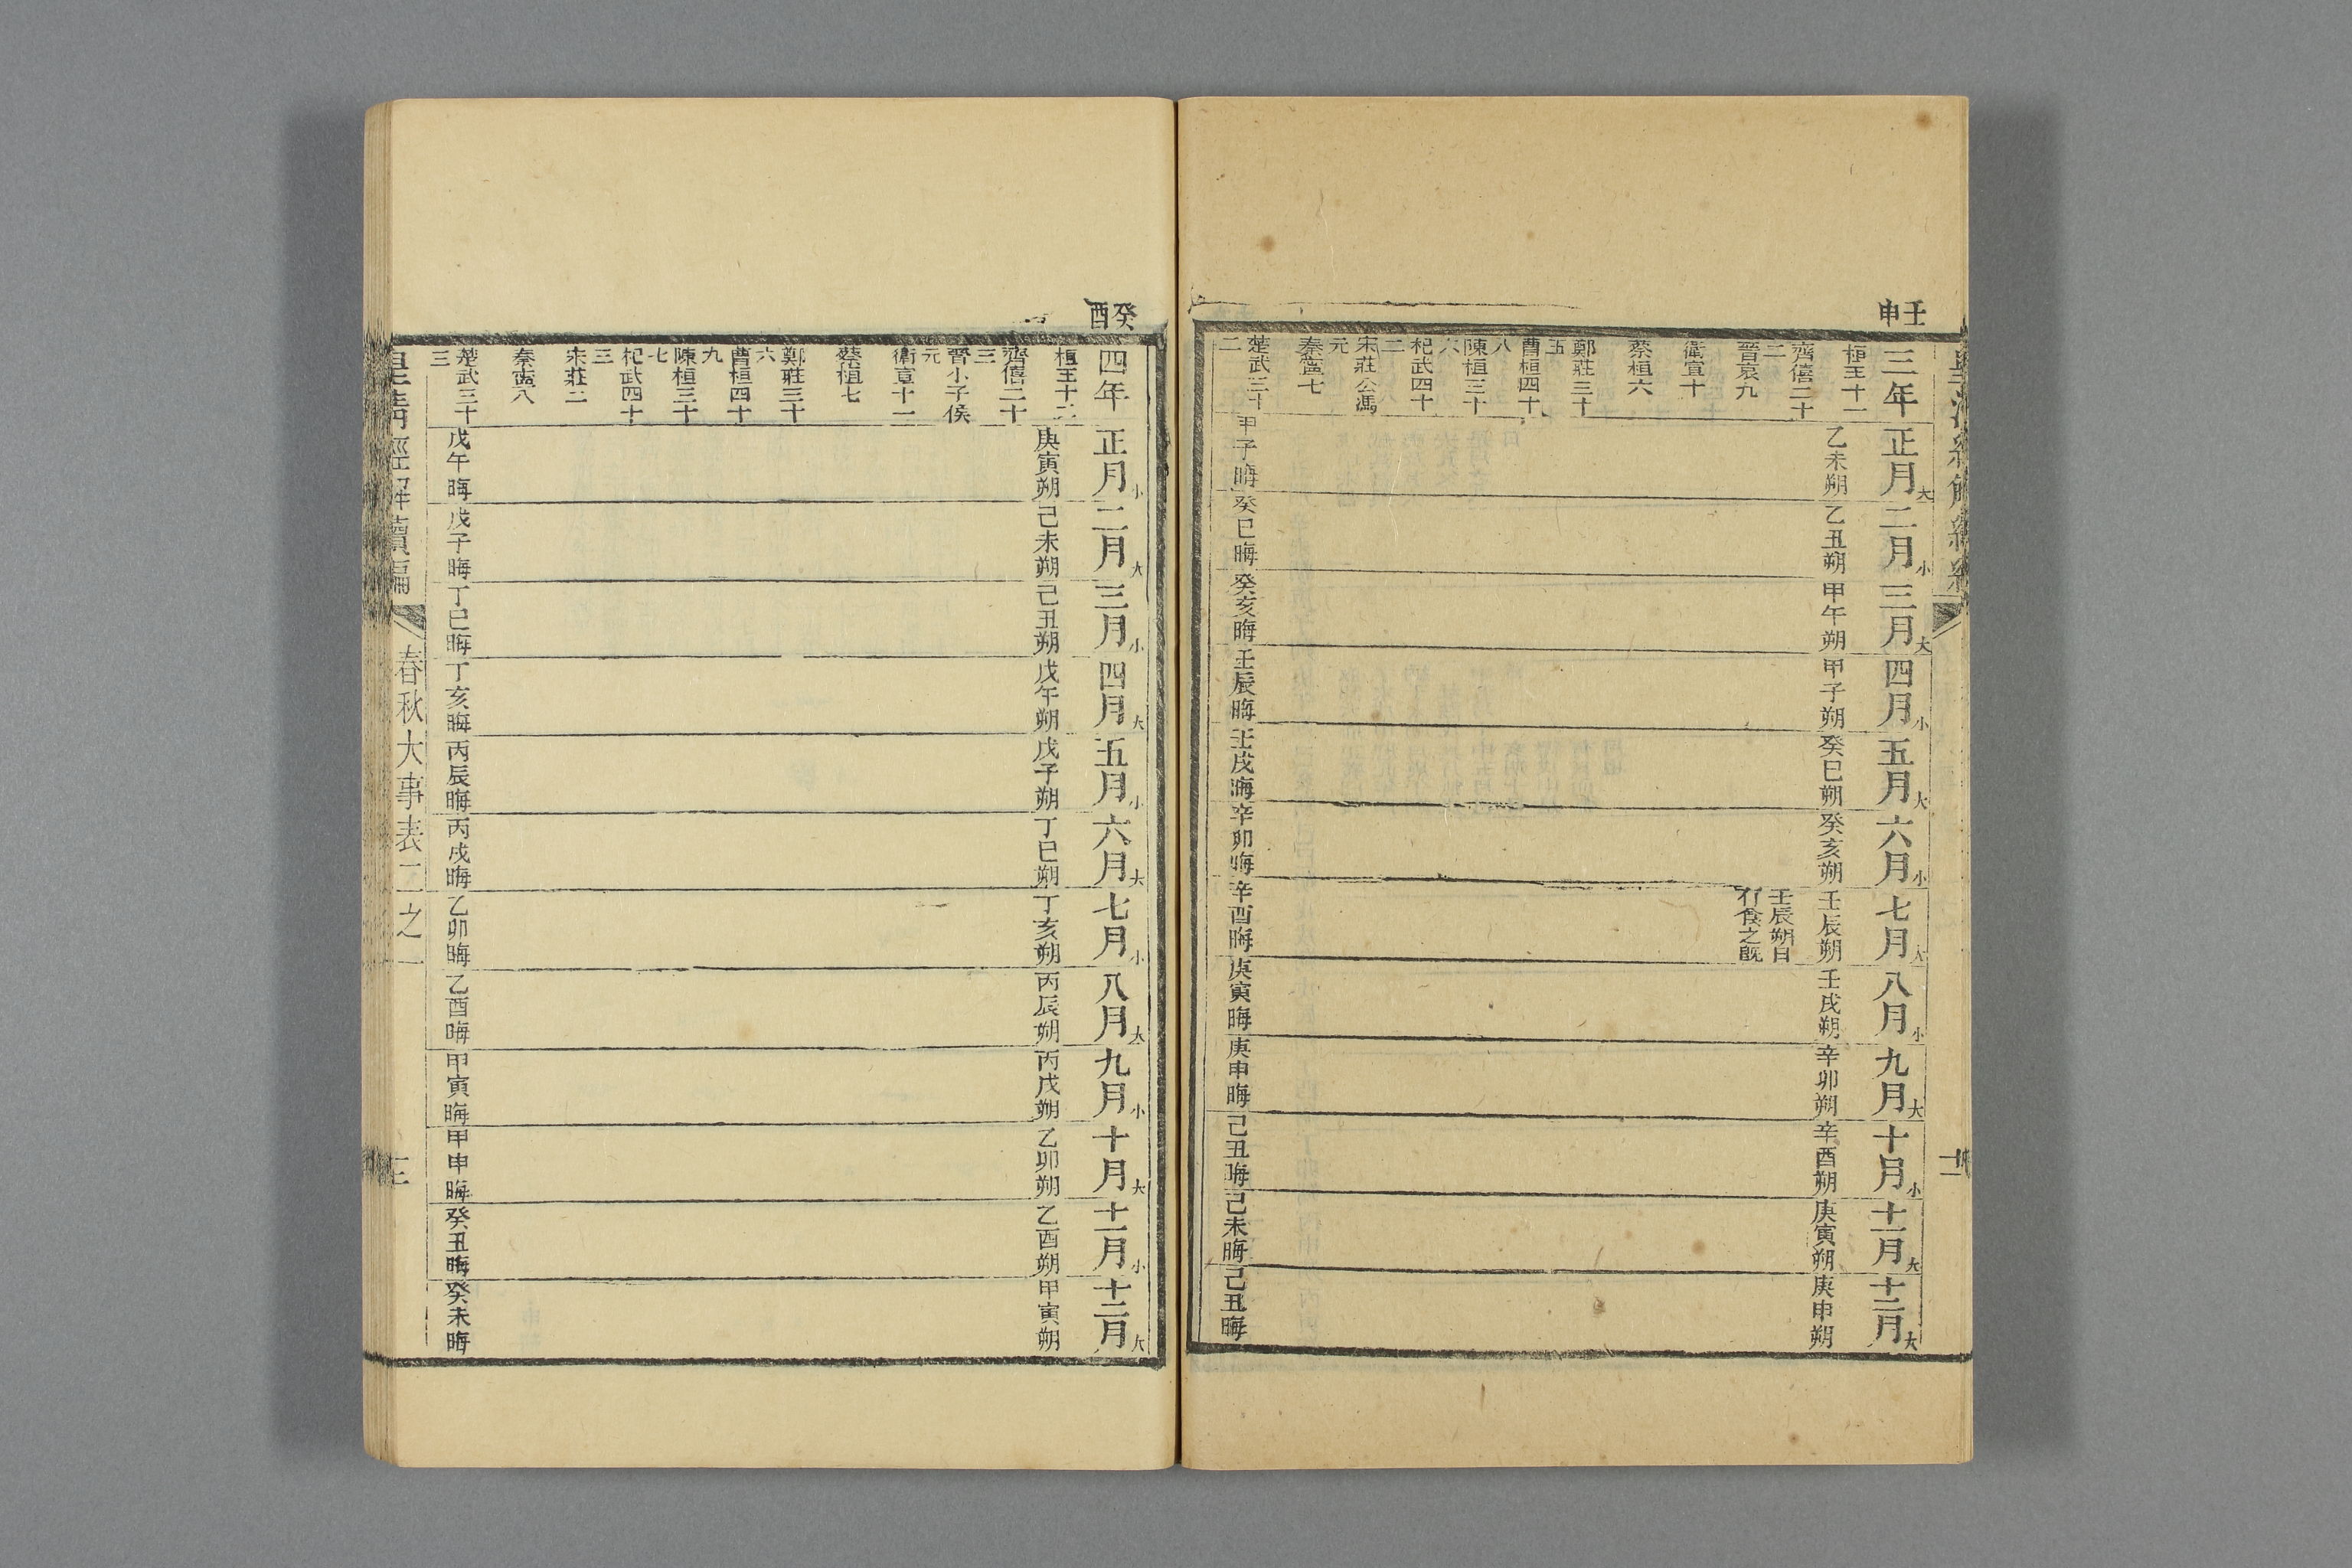 壬申
三年
桓王十一
齊僖二十
二
晉哀九
衛宣十
蔡桓六
鄭莊三十
五
曹桓四十
八
陳桓三十
六
杞武四十
二
宋莊公馮
元
秦寧七
楚武三十
二
正月大
乙未朔
甲子晦
二月小
乙丑朔
癸巳晦
三月大
甲午朔
癸亥晦
四月小
甲子朔
壬辰晦
五月大
癸巳朔
壬戌晦
六月小
癸亥朔
辛卯晦
七月大
壬辰朔
壬辰朔日
有食之旣
辛酉晦
八月小
壬戌朔
庚寅晦
九月大
辛卯朔
庚申晦
十月小
辛酉朔
己丑晦
十一月大
庚寅朔
己未晦
十二月大
庚申朔
己丑晦
癸酉
四年
桓王十二
齊僖二十
三
晉小子侯
元
衛宣十一
蔡桓七
鄭莊三十
六
曹桓四十
九
陳桓三十
七
杞武四十
三
宋莊二
秦寧八
楚武三十
三
正月小
庚寅朔
戊午晦
二月大
己未朔
戊子晦
三月小
己丑朔
丁巳晦
四月大
戊午朔
丁亥晦
五月小
戊子朔
丙辰晦
六月大
丁巳朔
丙戌晦
七月小
丁亥朔
乙卯晦
八月大
丙辰朔
乙酉晦
九月小
丙戌朔
甲寅晦
十月大
乙卯朔
甲申晦
十一月小
乙酉朔
癸丑晦
十二月大
甲寅朔
癸未晦
皇清經解續編
春秋大事表二之一